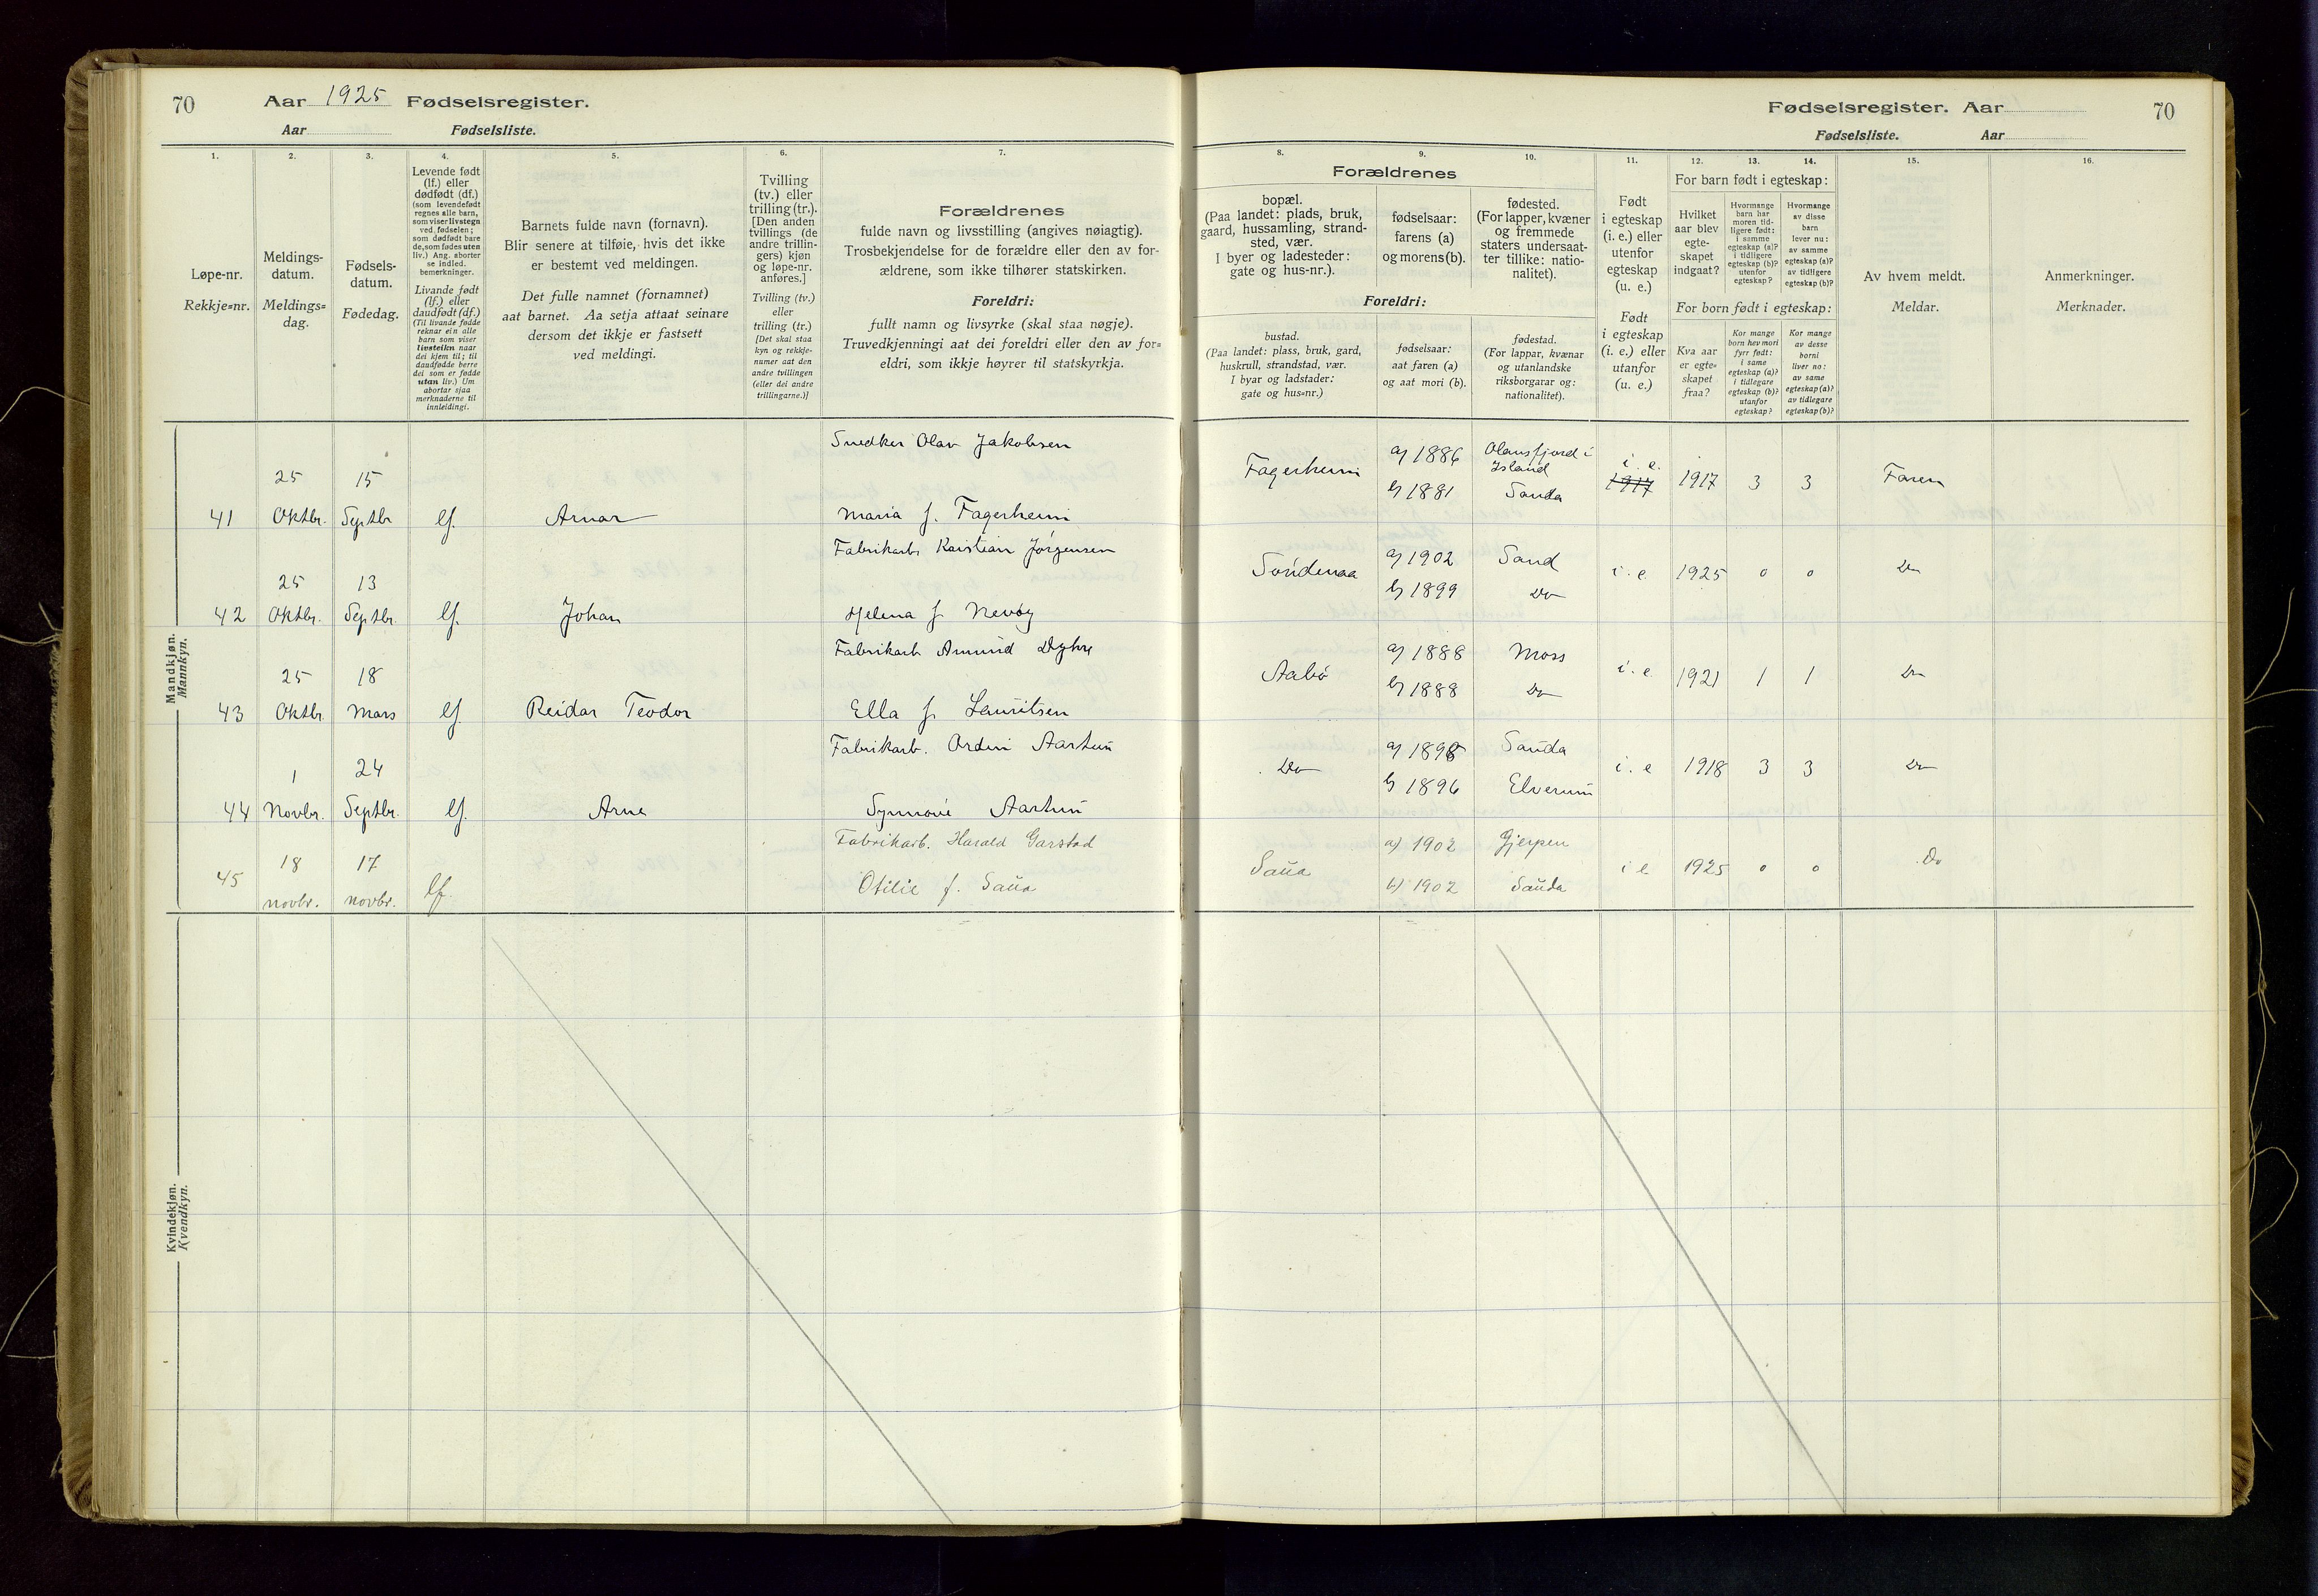 70
Aar 1925 Fødselsregister.
Aar Fødselsliste.
1.
2.
3.
4.
5.
6.
7.
Løpe-nr.
Rekkje=nr.
Meldings-
datum.
Meldings=
dag.
Fødsels-
datum.
Fødedag.
Levende født
(lf.) eller
dødfødt (df.)
(som levendefødt
regnes alle barn,
som viser livstegn
ved fødselen;
som dødfødt bare
de, som fødes uten
liv.) Ang. aborter
se indled.
bemerkninger.
Livande født
(lf.) eller
daudfødt (df.)
(Til livande fødde
reknar ein alle
barn som viser
livsteikn naar
dei kjem til; til
daudfødde berre
dei som er fødde
utan liv.) Um
abortar sjaa
merknaderne til
innleidingi.
Barnets fulde navn (fornavn).
Blir senere at tilføie, hvis det ikke
er bestemt ved meldingen.
Det fulle namnet (fornamnet)
aat barnet. Aa setja attaat seinare
dersom det ikkje er fastsett
ved meldingi.
Tvilling
(tv.) eller
trilling (tr.).
[Den anden
tvillings (de
andre trillin-
gers) kjøn
og løpe-nr.
anføres.]
Tvilling (tv.)
eller
trilling (tr.)
[Det skal staa
kyn og rekkje-
numer aat den
andre tvillingen
(eller dei andre
trillingarne.)]
Forældrenes
fulde navn og livsstilling (angives nøiagtig).
Trosbekjendelse for de forældre eller den av for-
ældrene, som ikke tilhører statskirken.
Foreldri:
fullt namn og livsyrke (skal staa nøgje).
Truvedkjenningi aat dei foreldri eller den av for=
eldri, som ikkje høyrer til statskyrkja.
Mandkjøn.
Mankyn.
Snedker Olav Jakobsen
25 15
41 Oktbr. Septbr lf. Arnar Maria f. Fagerheim
Fabrikarb. Kristian Jørgensen
25 13
42 Oktbr. Septbr. lf. Johan Helena f. Nevøy
Fabrikarb Amund Dyhre
25 18
43 Oktbr. Mars lf. Reidar Teodor Ella f. Lauritsen
Fabrikarb. Ordin Aartun
1 24
44 Novbr. Septbr. lf. Arne Synnøve Aartun
Fabrikarb. Harald Garstad
18 17
45 novbr. novbr. lf. Otilie f. Saua
Kvindekjøn.
Kvendkyn.
Fødselsregister. Aar 70
Fødselsliste. Aar
8.
9.
10.
11.
12.
13.
14.
15.
16.
Forældrenes
bopæl.
(Paa landet: plads, bruk,
gaard, hussamling, strand-
sted, vær.
I byer og ladesteder:
gate og hus-nr.).
fødselsaar:
farens (a)
og morens (b).
fødested.
(For lapper, kvæner
og fremmede
staters undersaat-
ter tillike: natio-
nalitet).
Foreldri:
bustad.
(Paa landet: plass, bruk, gard,
huskrull, strandstad, vær.
I byar og ladstader:
gate og hus=nr.)
fødselsaar:
aat faren (a)
og aat mori (b).
fødestad.
(For lappar, kvænar
og utanlandske
riksborgarar og:
nationalitet).
Født
i egteskap
(i. e.) eller
utenfor
egteskap
(u. e.)
Født
i egteskap
(i. e.) eller
utanfor
(u. e.)
For barn født i egteskap:
Hvilket
aar blev
egte-
skapet
indgaat?
Hvormange
barn har
moren tid-
ligere født:
i samme
egteskap (a)?
i tidligere
egteskap (b)?
utenfor
egteskap?
Hvormange
av disse
barn
lever nu:
av samme
egteskap (a)?
av tidligere
egteskap (b)?
For born født i egteskap:
Kva aar
er egte-
skapet
fraa?
Kor mange
born hev mori
fyrr født:
i same
egteskap (a)?
i tidlegare
egteskap (b)?
utanfor
egteskap?
Kor mange
av desse
borni
liver no:
av same
egteskap (a)?
av tidlegare
egteskap (b)?
Av hvem meldt.
Meldar.
Anmerkninger.
Merknader.
a) 1886 Olausfjord i
Island
Fagerheim i. e. 1917 1917 3 3 Faren
b) 1881 Sauda
a) 1902 Sand
Søndenaa i. e. 1925 0 0 Do
b) 1899 Do
a) 1888 Moss
Aabø i. e 1921 1 1 Do
b) 1888 Do
a) 1898 Sauda
Do i. e 1918 3 3 Do
b) 1896 Elverum
a) 1902 Gjerpen
Saua i e 1925 0 0 Do
b) 1902 Sauda